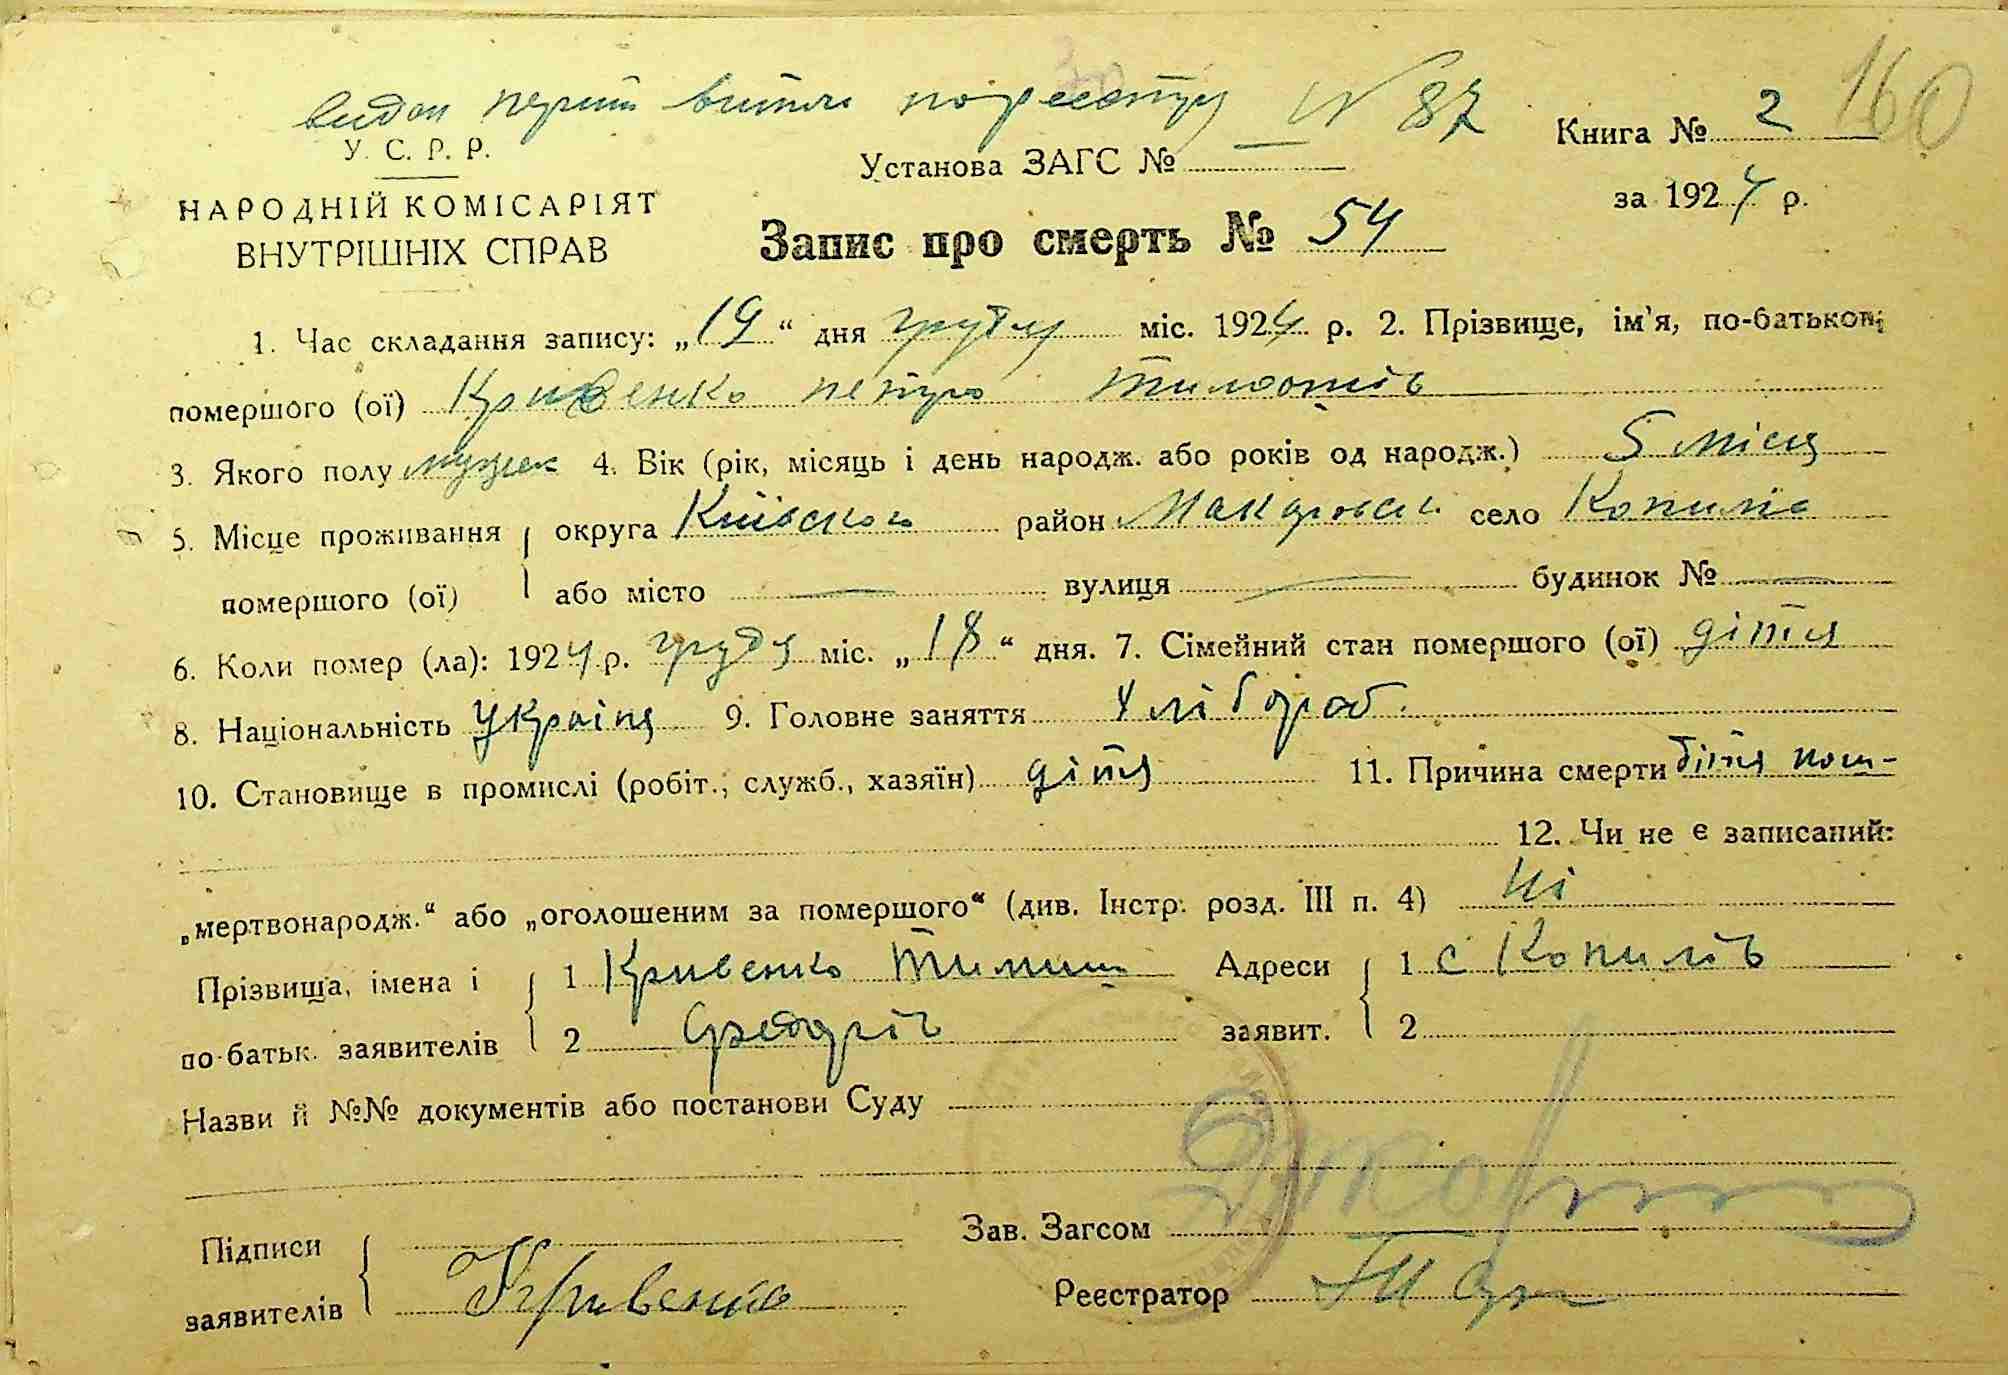 видан перший витяг по реєстру № 87
160
У. С. Р. Р.
Установа ЗАГС № —
Книга № 2
НАРОДНІЙ КОМІСАРІЯТ
ВНУТРІШНІХ СПРАВ
за 1924 р.
Запис про смерть № 54
1. Час складання запису: „19“ дня грудня міс. 1924 р. 2. Прізвище, ім'я, по-батькові
помершого (ої) Кривенко Петро Тимофіїв
3. Якого полу мужеск 4. Вік (рік, місяць і день народж. або років од народж.) 5 місяц
5. Місце проживання помершого (ої) { округа Київского район Макаровськ. село Копилів
або місто — вулиця — будинок № —
6. Коли помер (ла): 1924 р. грудя міс. „18“ дня. 7. Сімейний стан помершого (ої) дітя
8. Національність Україня 9. Головне заняття хлібороб.
10. Становище в промислі (робіт., служб., хазяїн) дітя 11. Причина смерти
12. Чи не є записаний:
„мертвонародж.“ або „оголошеним за помершого“ (див. Інстр. розд. III п. 4) Ні
Прізвища, імена і по-батьк. заявителів { 1 Кривенко Тимиш Адреси заявит. { 1 с Копилів
2 Федорів 2
Назви й №№ документів або постанови Суду
Зав. Загсом
Підписи заявителів { Кривенко
Реєстратор